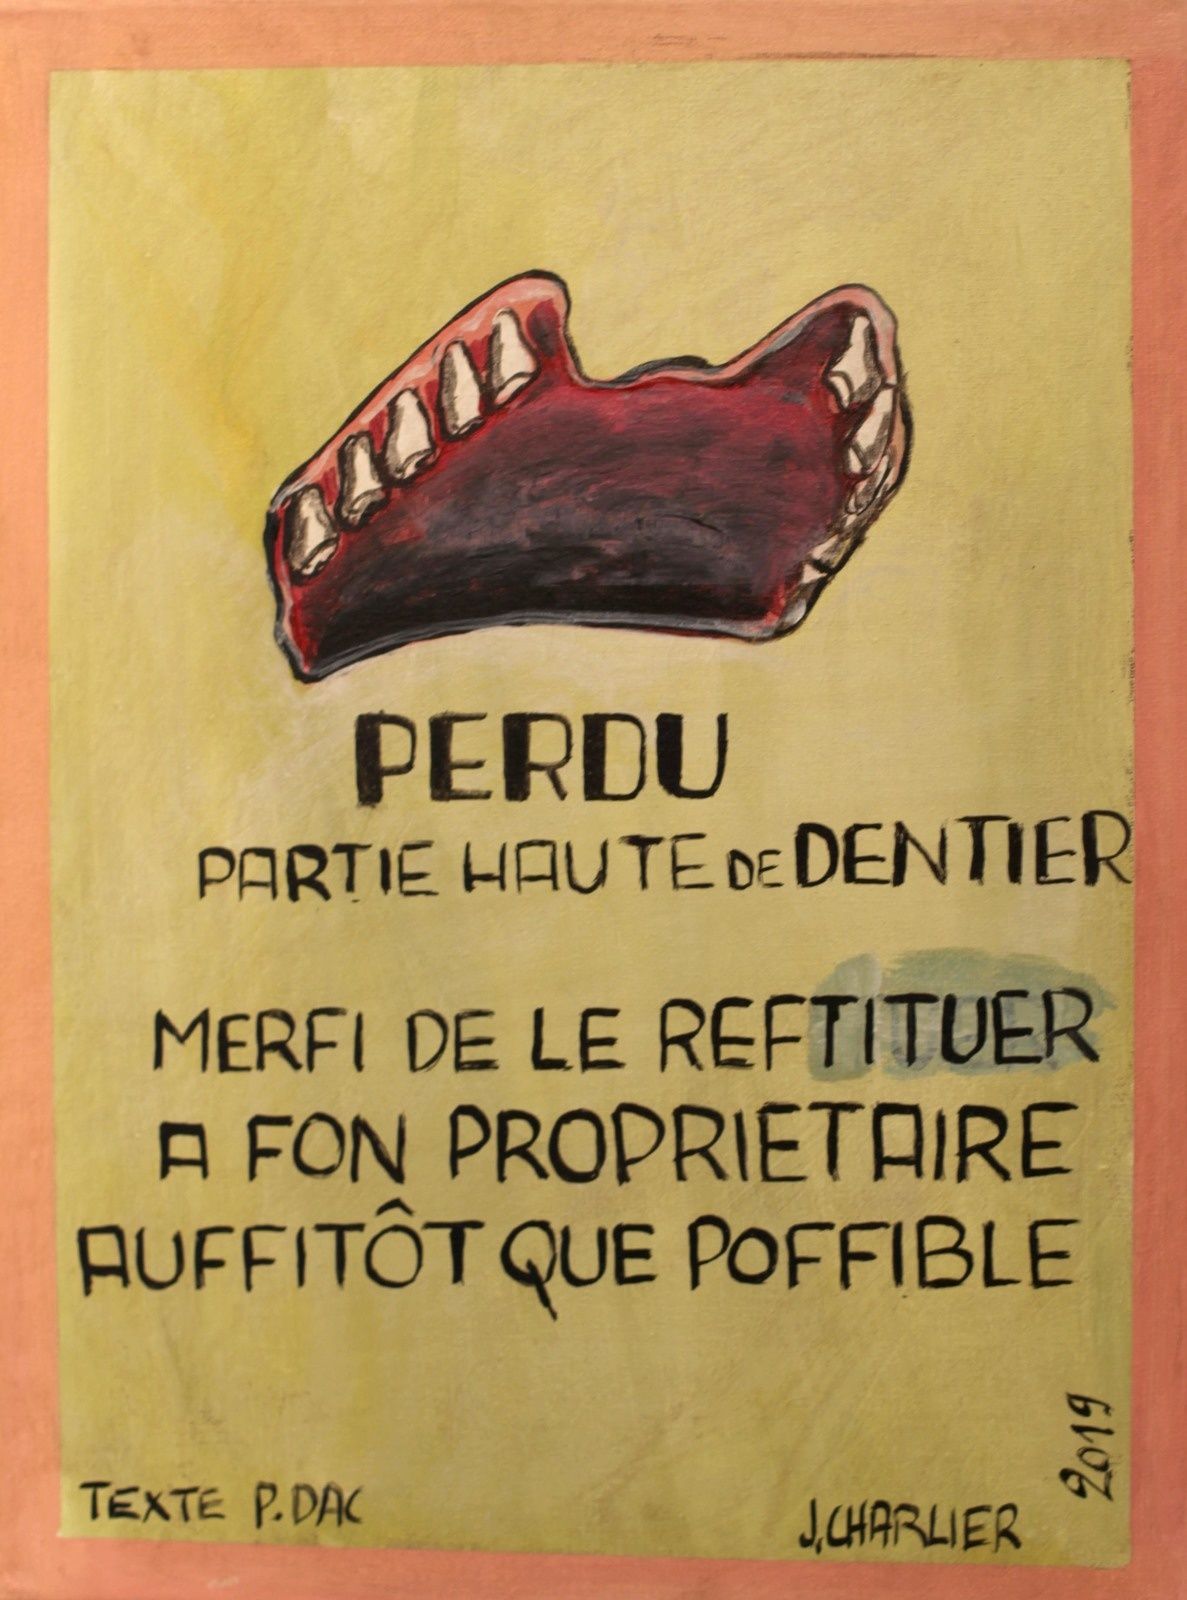 PERDU
PARTIE HAUTE DE DENTIER
MERFI DE LE REFTITUER
A FON PROPRIETAIRE
AUFFITÔT QUE POFFIBLE
2019
TEXTE P. DAC
J. CHARLIER